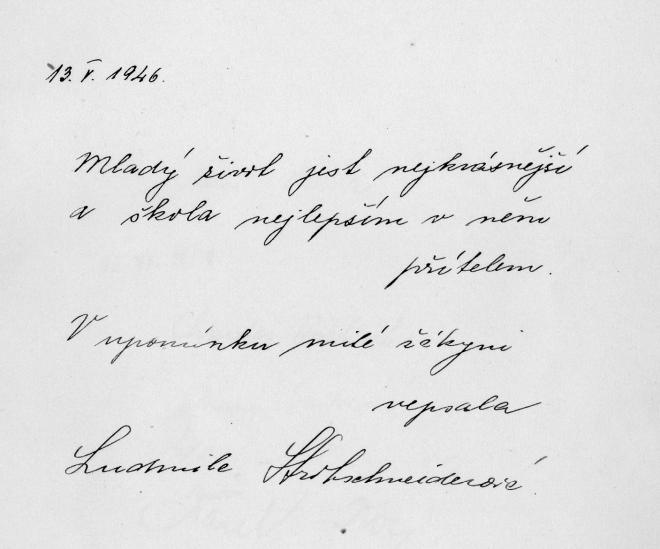 13. V. 1946.
Mladý život jest nejkrásnější
a škola nejlepším v něm
přítelem.
V upomínku milé žákyni
vepsala
Ludmila